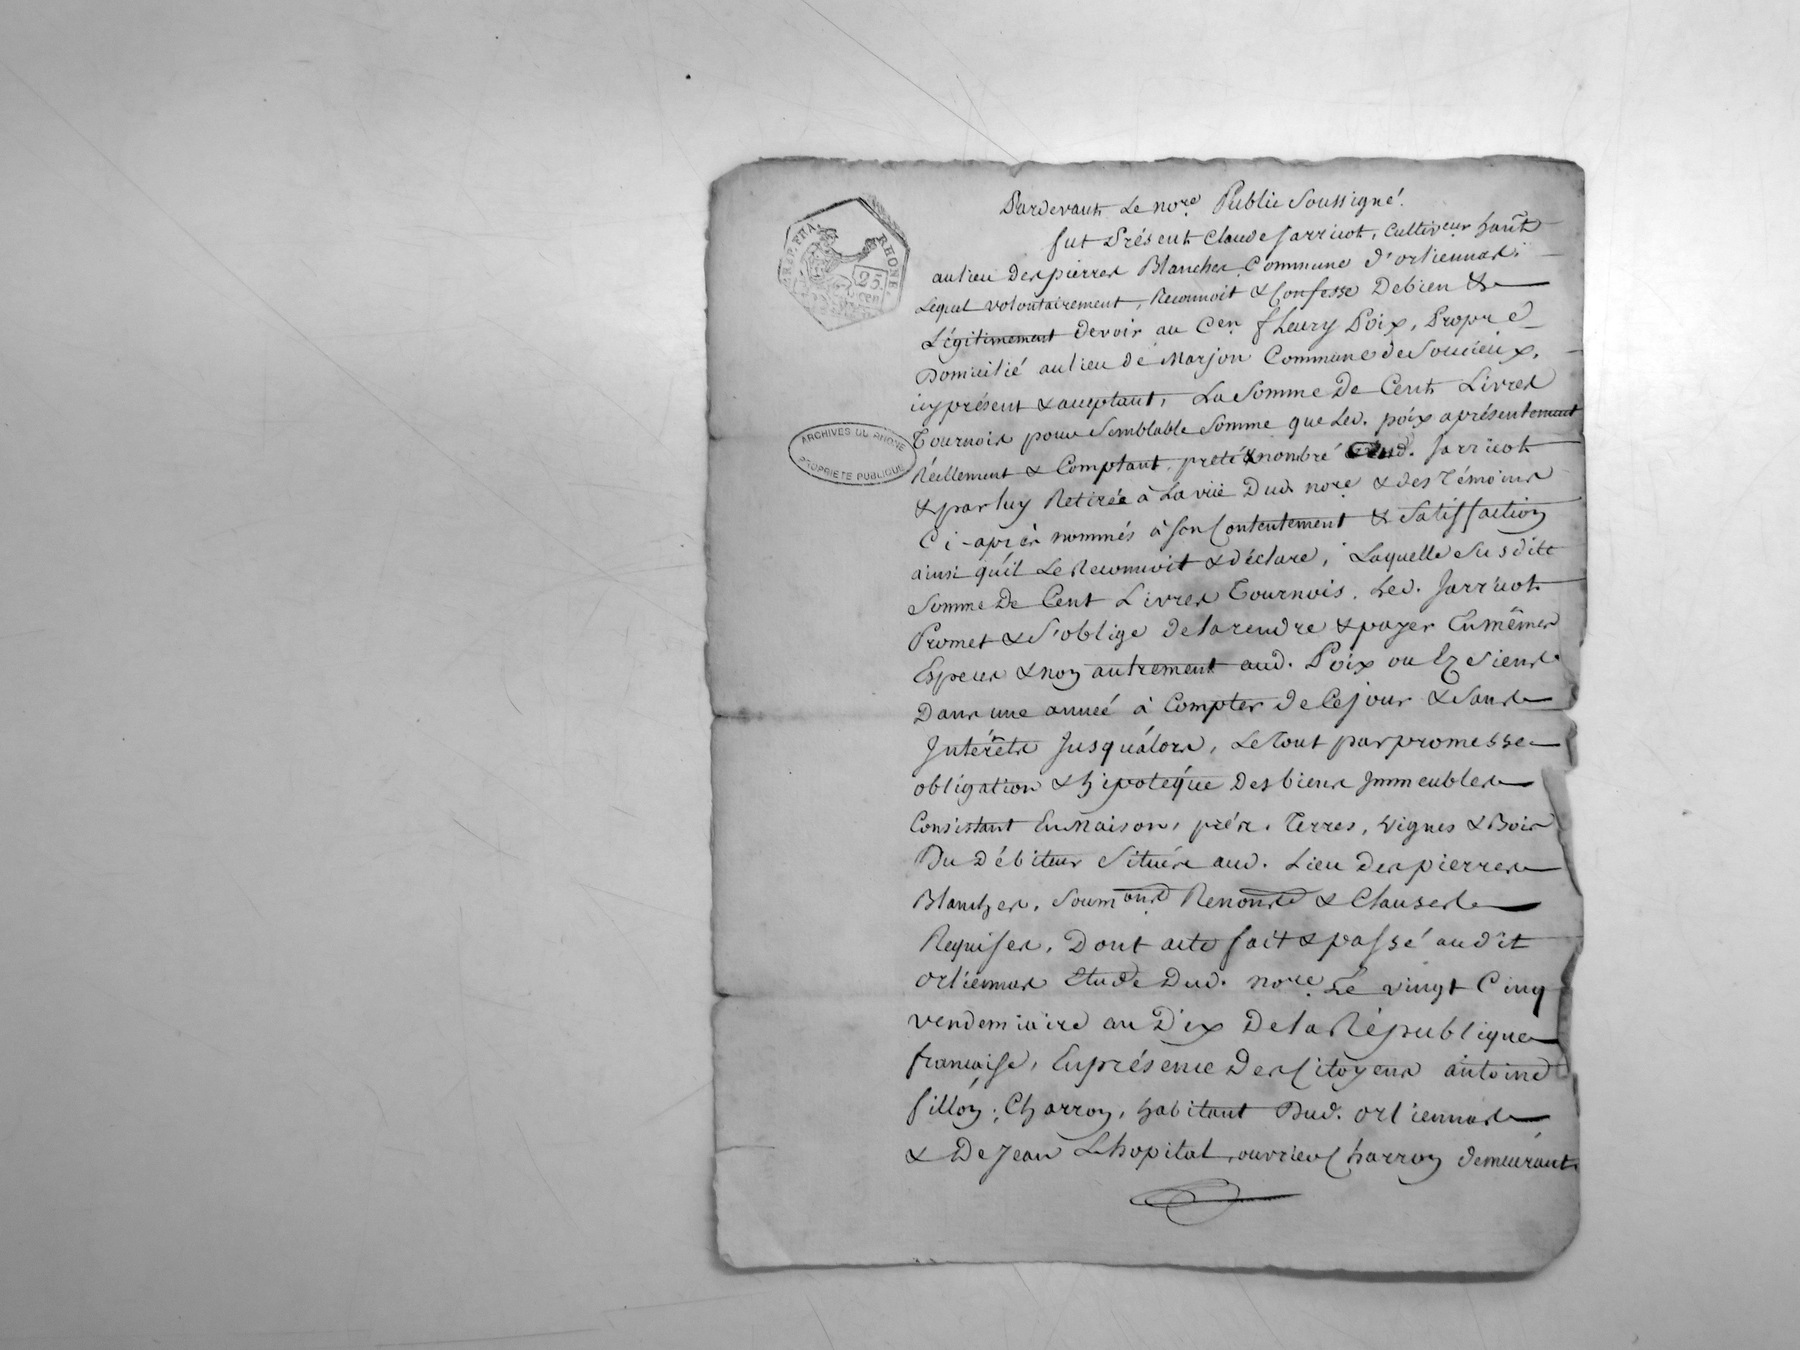 RÉP. FRA.
RHONE
25
cen
Pardevant Le nore. Public Soussigné.
fut Présent Claude Jarricot, Cultiveur habt.
au lieu des pierres Blanches Commune d'orliennas,
Lequel volontairement, Reconnoit & Confesse Debien &
Légitimement devoir au Cen. fleury Poix, Propre.
Domicilié au lieu de Marjon Commune de Soucieux,
icy présent & acceptant, La Somme De Cent Livres
Tournois pour Semblable Somme que Led. poix a présentement
ARCHIVES DU RHONE
PROPRIETE PUBLIQUE
Réellement & Comptant, prêté & nombré aud. Jarricot
& par luy Retirée à La vüe Dud. nore. & des Témoins
Ci-après nommés à son Contentement & Satisfaction
ainsi qu'il Le Reconnoit & déclare, Laquelle Susdite
Somme De Cent Livres Tournois, Led. Jarricot
Promet & S'oblige de la rendre & payer En mêmes
Espèces & non autrement aud. Poix ou Ez Siens
Dans une année à Compter de Ce jour & Sans
Intérêts Jusqu'alors, Le Tout par promesse
obligation & hipotéque Des biens Immeubles
Consistant En Maison, prés, Terres, Vignes & Bois
Du Débiteur Situés aud. Lieu des pierres
Blanches, Soumons Renons & Clauses
Requises, Dont acte fait & passé audit
orliennas Etude Dud. nore. Le vingt Cinq
vendemiaire an Dix De la République
française, En présence Des Citoyens antoine
fillon, Charron, habitant Dud. orliennas
& De Jean Lhopital, ouvrier Charron demeurant